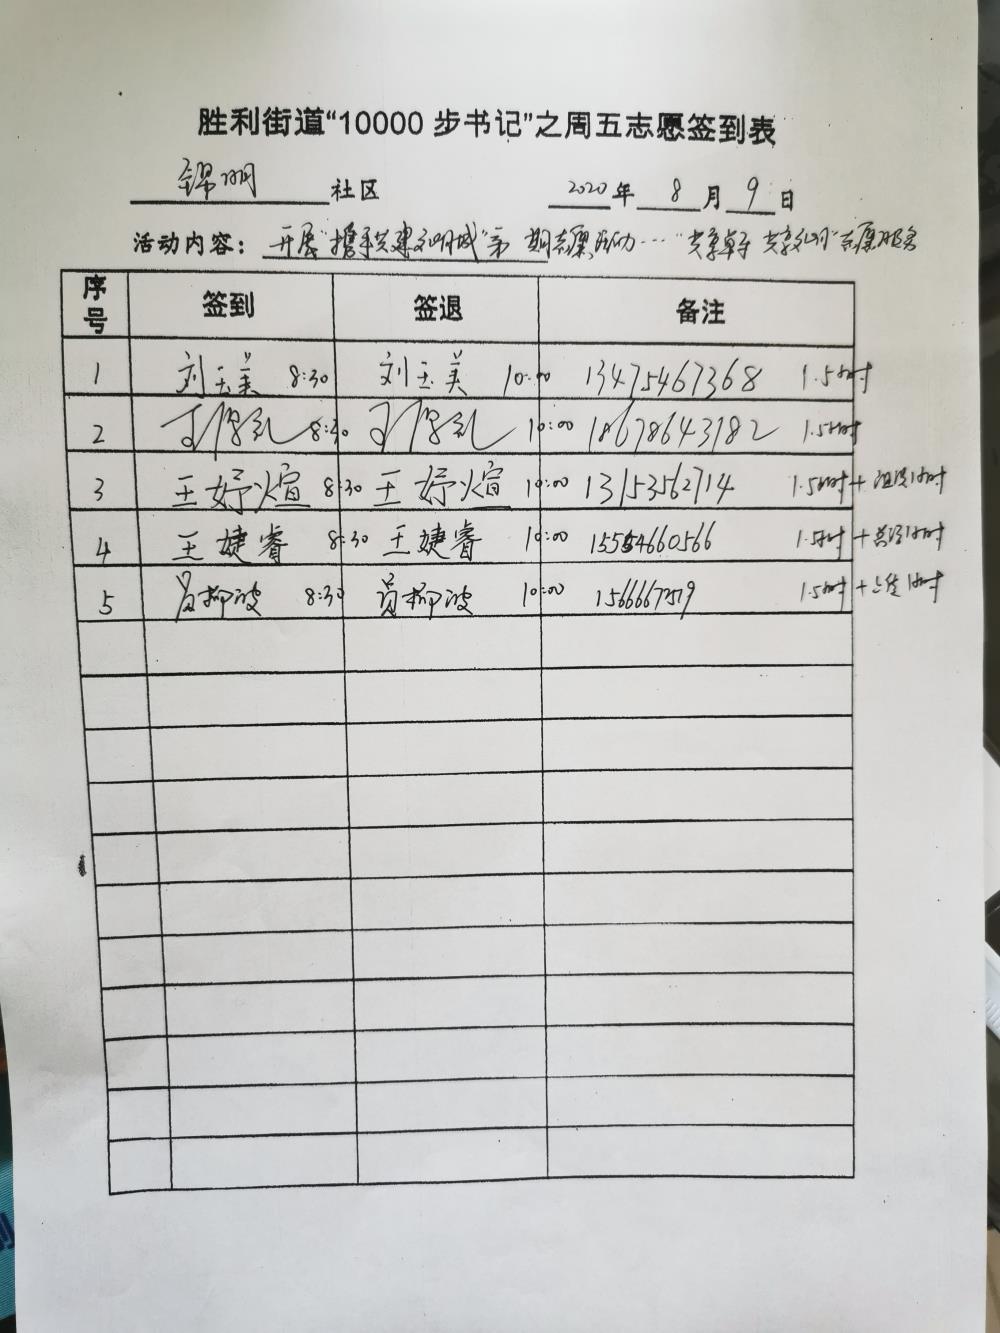 胜利街道“10000 步书记”之周五志愿签到表
锦明 社区 2020 年 8 月 9 日
活动内容： 开展“携手共建文明城”第 期志愿活动…“共享单车 共享文明”志愿服务
序号 签到 签退 备注
1 刘玉美 8:30 刘玉美 10:00 13475467368 1.5小时
2 8:30 10:00 18678643182 1.5小时
3 王妤煊 8:30 王妤煊 10:00 13153562714 1.5小时+ 1小时
4 王婕睿 8:30 王婕睿 10:00 15554660566 1.5小时+ 1小时
5 8:30 10:00 1.5小时+ 1小时